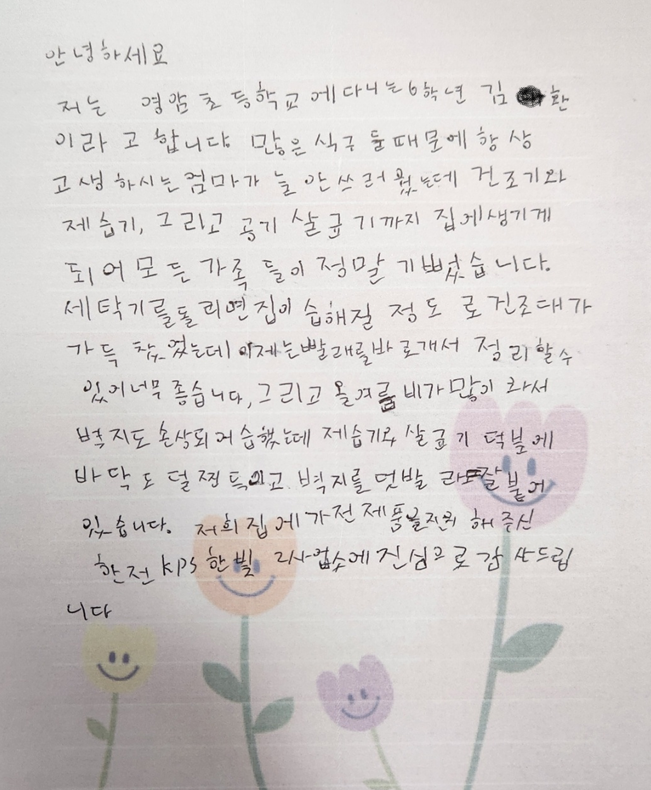 안녕하세요
저는 영암초등학교에 다니는 6학년 김 환
이라고 합니다. 많은 식구들 때문에 항상
고생하시는 엄마가 늘 안쓰러웠는데 건조기와
제습기, 그리고 공기 살균기까지 집에 생기게
되어 모든 가족들이 정말 기뻤습니다.
세탁기를 돌리면 집이 습해질 정도로 건조대가
가득 찼었는데 이제는 빨래를 바로 개서 정리할 수
있어 너무 좋습니다, 그리고 올여름 비가 많이 와서
벽지도 손상되어 습했는데 제습기와 살균기 덕분에
바닥도 덜 찐득이고 벽지를 덧발라도 잘 붙어
있습니다. 저희 집에 가전제품을 지원해 주신
한전KPS 한빛 2사업소에 진심으로 감사드립
니다